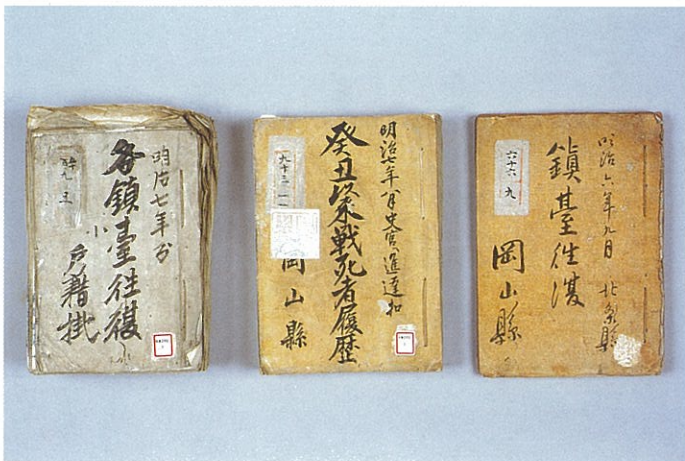 明治六年九月 北条縣
鎮臺往復
岡山縣
六十六 九
明治七年一月史官へ進達扣
癸丑以来戦死者履歴
岡山縣
九十三 一
明治七年分
各鎮臺往復
戸籍掛